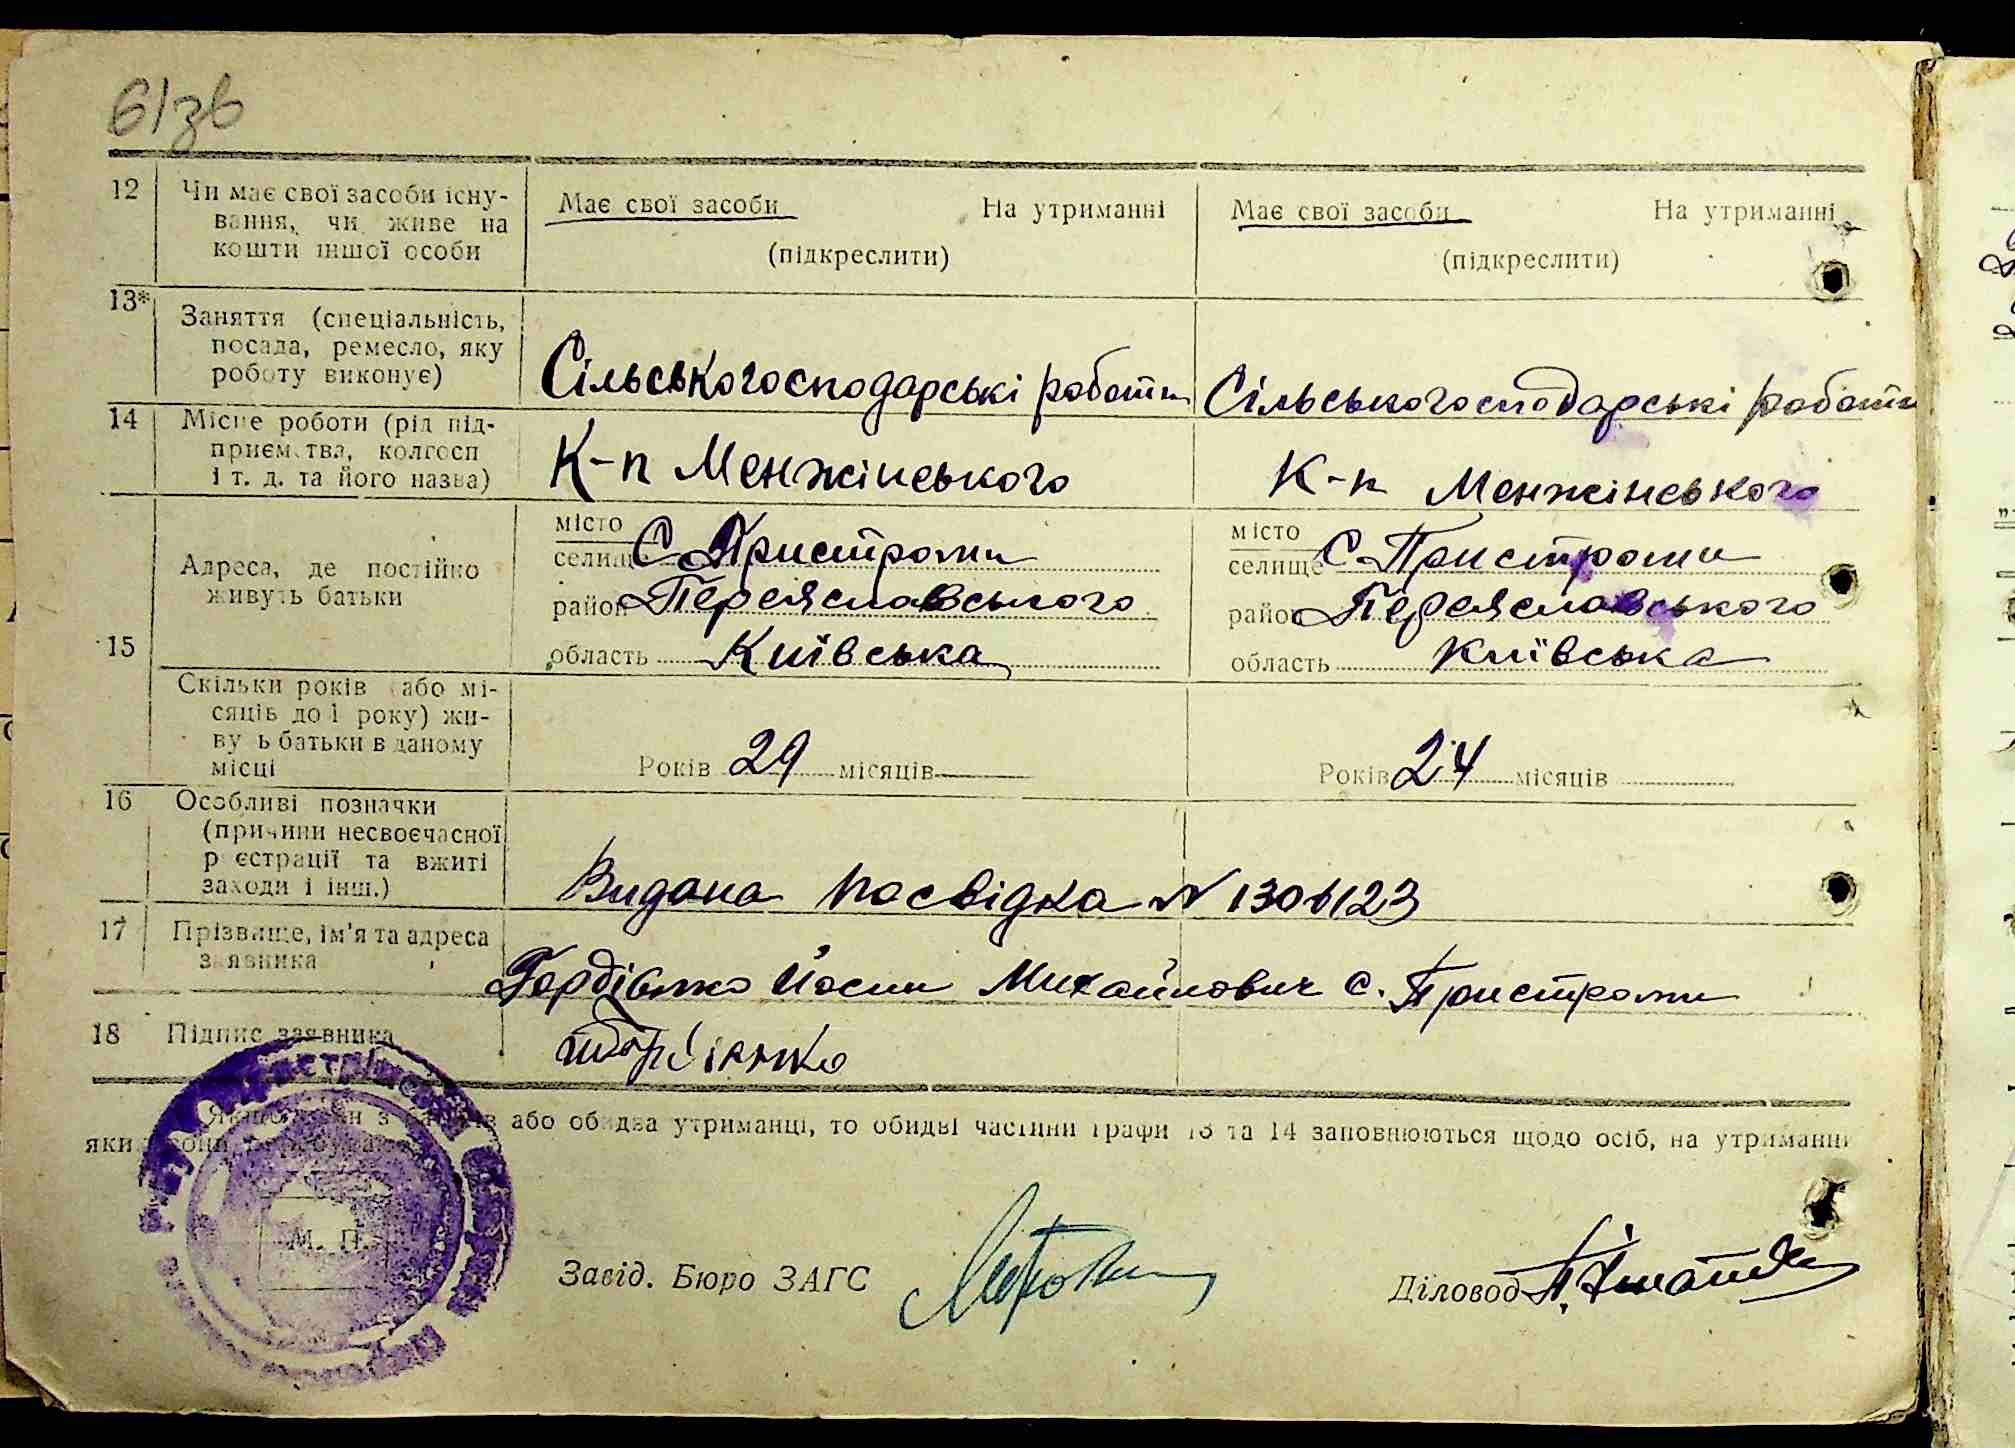 61зв
12 Чи має свої засоби існу-
вання, чи живе на
кошти іншої особи
Має свої засоби На утриманні
(підкреслити)
Має свої засоби На утриманні
(підкреслити)
13* Заняття (спеціальність,
посада, ремесло, яку
роботу виконує)
Сільськогосподарські работи
Сільськогосподарські работи
14 Місце роботи (рід під-
приємства, колгосп
і т. д. та його назва)
К-п Менжінського
К-п Менжінського
15 Адреса, де постійно
живуть батьки
місто
селище С. Пристроми
район Переяславського
область Київська
місто
селище С. Пристроми
район Переяславського
область Київська
Скільки років (або мі-
сяців до 1 року) жи-
вуть батьки в даному
місці
Років 29 місяців
Років 24 місяців
16 Особливі позначки
(причини несвоєчасної
реєстрації та вжиті
заходи і інш.)
Видана посвідка N
17 Прізвище, ім'я та адреса
заявника
Гордієнко Йосип Михайлович С. Пристроми
18 Підпис заявника
або обидва утриманці, то обидві частини графи 13 та 14 заповнюються щодо осіб, на утриманні
яких вони
М. П.
Завід. Бюро ЗАГС
Діловод